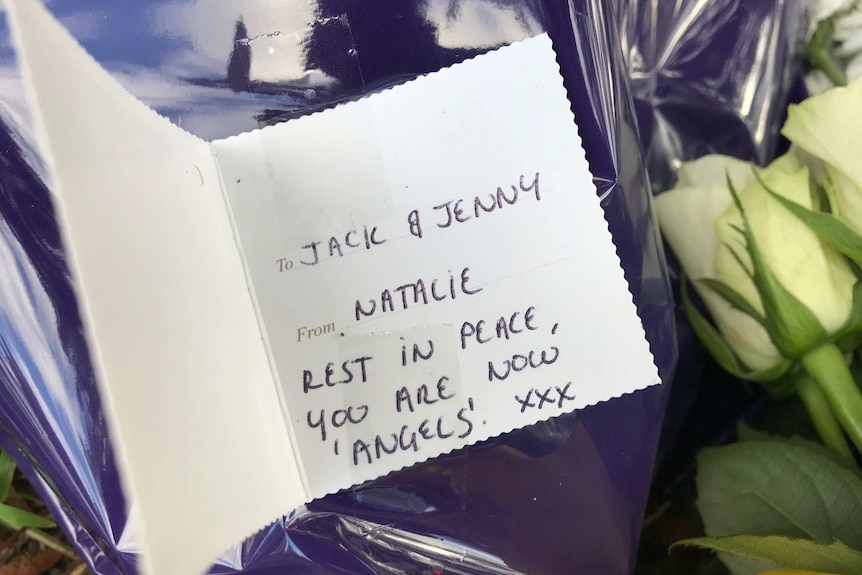 To JACK & JENNY
From NATALIE
REST IN PEACE,
YOU ARE NOW
'ANGELS'. XXX